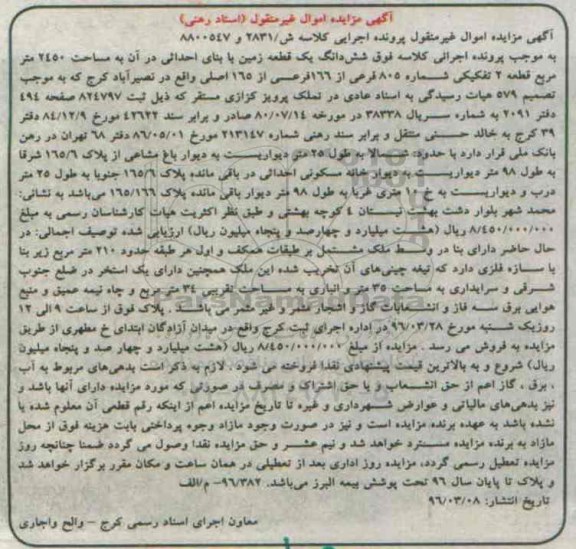 آگهی مزایده اموال غیرمنقول (اسناد رهنی)
آگهی مزایده اموال غیرمنقول پرونده اجرایی کلاسه ش/۲۸۳۱ و ۸۸۰۰۵۴۷
به موجب پرونده اجرائی کلاسه فوق شش‌دانگ یک قطعه زمین با بنای احداثی در آن به مساحت ۲۴۵۰ متر
مربع قطعه ۲ تفکیکی شماره ۸۰۵ فرعی از ۱۶۶فرعی از ۱۶۵ اصلی واقع در نصیرآباد کرج که به موجب
تصمیم ۵۷۹ هیات رسیدگی به اسناد عادی در تملک پرویز کزازی مستقر که ذیل ثبت ۸۲۴۷۹۷ صفحه ۴۹۴
دفتر ۲۰۹۱ به شماره سریال ۳۸۳۳۸ در مورخه ۸۰/۰۷/۱۴ صادر و برابر سند ۴۲۶۲۲ مورخ ۸۴/۱۲/۹ دفتر
۳۹ کرج به خالد حسنی منتقل و برابر سند رهنی شماره ۲۱۳۱۴۷ مورخ ۸۶/۰۵/۰۱ دفتر ۶۸ تهران در رهن
بانک ملی قرار دارد با حدود: شمالا به طول ۲۵ متر دیواریست به دیوار باغ مشاعی از پلاک ۱۶۵/۶ شرقا
به طول ۹۸ متر دیواریست به دیوار خانه مسکونی احداثی در باقی مانده پلاک ۱۶۵/۶ جنوبا به طول ۲۵ متر
درب و دیواریست به خ ۱۰ متری غربا به طول ۹۸ متر دیوار باقی مانده پلاک ۱۶۵/۱۶۶ می‌باشد به نشانی:
محمد شهر بلوار دشت بهشت نیستان ۴ کوچه بهشتی و طبق نظر اکثریت هیات کارشناسان رسمی به مبلغ
۸/۴۵۰/۰۰۰/۰۰۰ ریال (هشت میلیارد و چهارصد و پنجاه میلیون ریال) ارزیابی شده توصیف اجمالی: در
حال حاضر دارای بنا در وسط ملک مشتمل بر طبقات همکف و اول هر طبقه حدود ۲۱۰ متر مربع زیر بنا
با سازه فلزی دارد که تیغه چینی‌های آن تخریب شده این ملک همچنین دارای یک استخر در ضلع جنوب
شرقی و سرایداری به مساحت ۳۵ متر و انباری به مساحت تقریبی ۳۴ متر مربع و چاه نیمه عمیق و منبع
هوایی برق سه فاز و انشعابات گاز و اشجار مثمر و غیر مثمر می باشد . پلاک فوق از ساعت ۹ الی ۱۲
روزیک شنبه مورخ ۹۶/۰۳/۲۸ در اداره اجرای ثبت کرج واقع در میدان آزادگان ابتدای خ مطهری از طریق
مزایده به فروش می رسد . مزایده از مبلغ ۸/۴۵۰/۰۰۰/۰۰۰ ریال (هشت میلیارد و چهار صد و پنجاه میلیون
ریال) شروع و به بالاترین قیمت پیشنهادی نقدا فروخته می شود . لازم به ذکر است بدهی‌های مربوط به آب
، برق ، گاز اعم از حق انشعاب و یا حق اشتراک و مصرف در صورتی که مورد مزایده دارای آنها باشد و
نیز بدهی‌های مالیاتی و عوارض شهرداری و غیره تا تاریخ مزایده اعم از اینکه رقم قطعی آن معلوم شده یا
نشده باشد به عهده برنده مزایده است و نیز در صورت وجود مازاد وجوه پرداختی بابت هزینه فوق از محل
مازاد به برنده مزایده مسترد خواهد شد و نیم عشر و حق مزایده نقدا وصول می گردد ضمنا چنانچه روز
مزایده تعطیل رسمی گردد، مزایده روز اداری بعد از تعطیلی در همان ساعت و مکان مقرر برگزار خواهد شد
و پلاک تا پایان سال ۹۶ تحت پوشش بیمه البرز می‌باشد. ۹۶/۳۸۲- م/الف
تاریخ انتشار: ۹۶/۰۳/۰۸
معاون اجرای اسناد رسمی کرج - والح واجاری